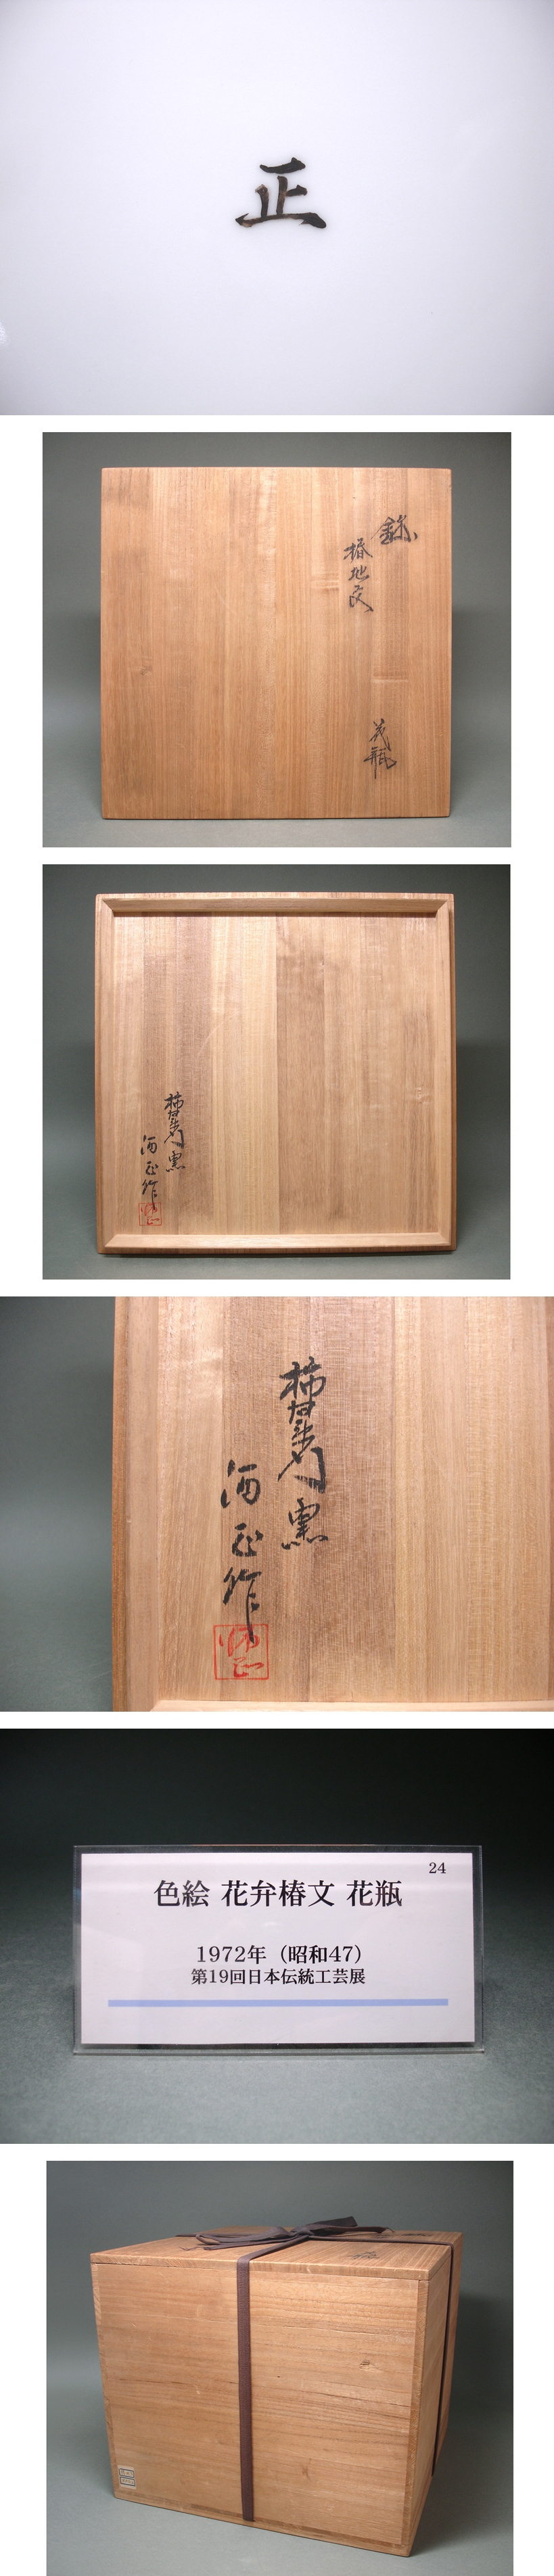 正
錦
椿地文
花瓶
柿右衛門窯
酒正作
柿右衛門窯
酒正作
24
色絵 花弁椿文 花瓶
1972年（昭和47）
第19回日本伝統工芸展